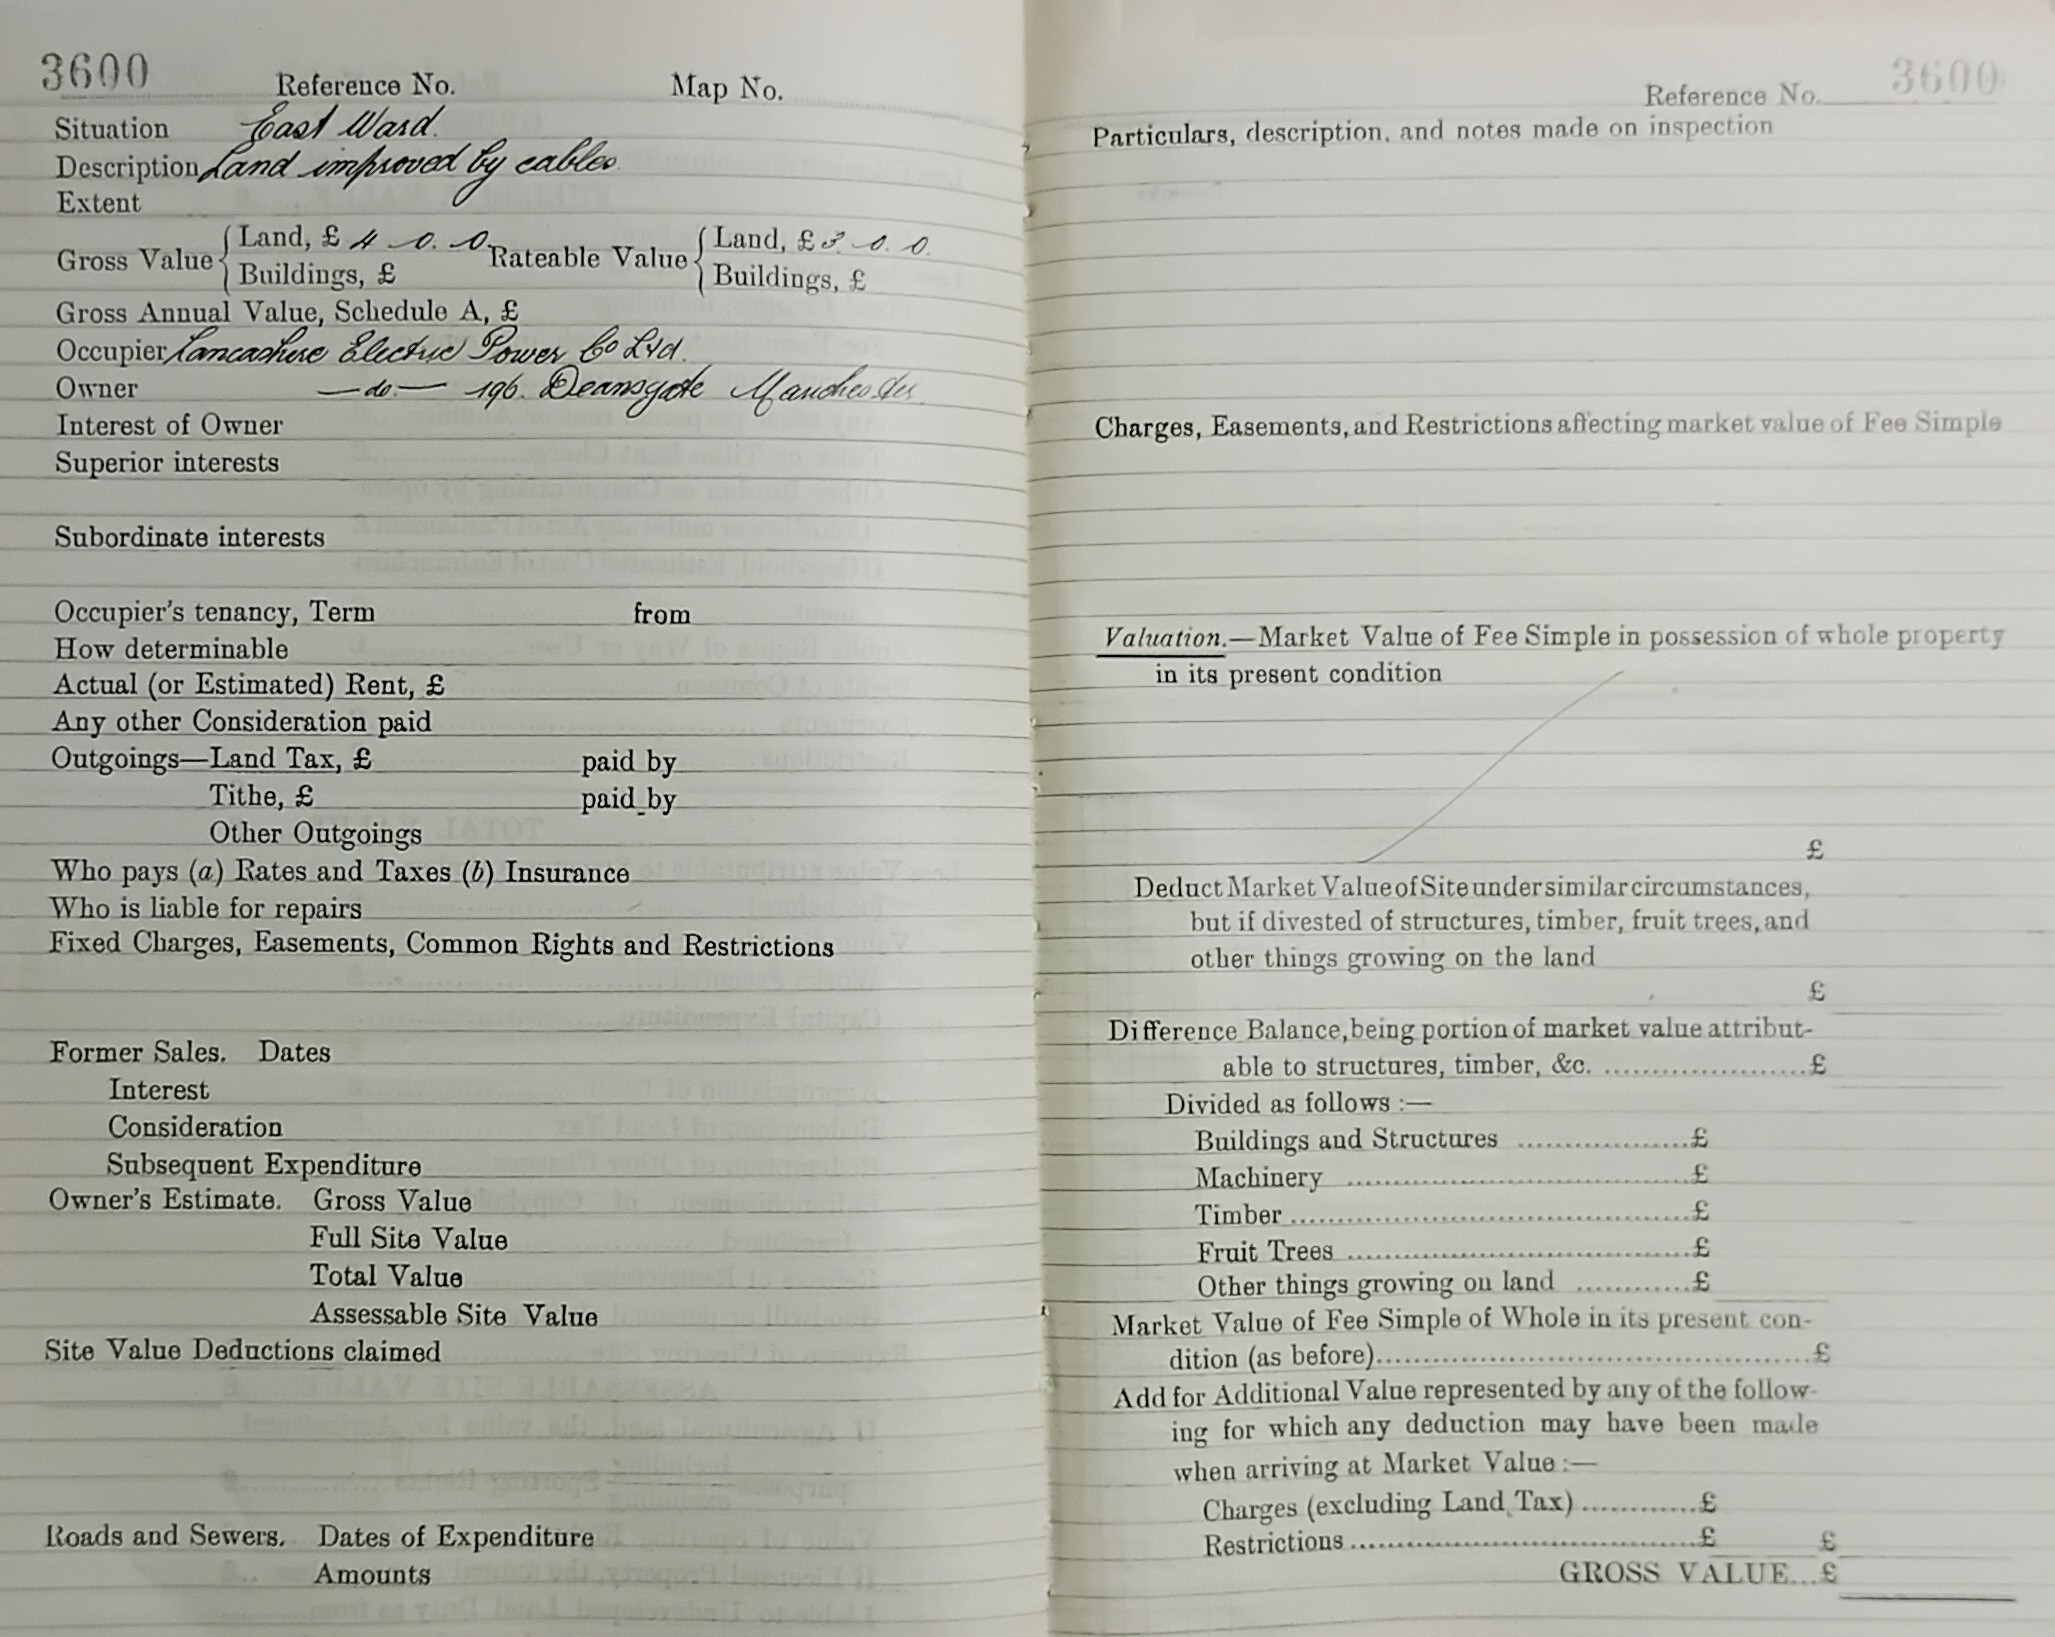 3600 Reference No. Map No.
Situation East Ward.
Description Land improved by cables.
Extent
Gross Value { Land, £ 4 0. 0. Rateable Value { Land, £ 3. 0. 0.
Buildings, £ Buildings, £
Gross Annual Value, Schedule A, £
Occupier Lancashire Electric Power Co Ltd.
Owner — do. — 196. Deansgate Manchester
Interest of Owner
Superior interests
Subordinate interests
Occupier's tenancy, Term from
How determinable
Actual (or Estimated) Rent, £
Any other Consideration paid
Outgoings—Land Tax, £ paid by
Tithe, £ paid by
Other Outgoings
Who pays (a) Rates and Taxes (b) Insurance
Who is liable for repairs
Fixed Charges, Easements, Common Rights and Restrictions
Former Sales. Dates
Interest
Consideration
Subsequent Expenditure
Owner's Estimate. Gross Value
Full Site Value
Total Value
Assessable Site Value
Site Value Deductions claimed
Roads and Sewers. Dates of Expenditure
Amounts
Reference No. 3600
Particulars, description, and notes made on inspection
Charges, Easements, and Restrictions affecting market value of Fee Simple
Valuation.—Market Value of Fee Simple in possession of whole property
in its present condition
£
Deduct Market Value of Site under similar circumstances,
but if divested of structures, timber, fruit trees, and
other things growing on the land
£
Difference Balance, being portion of market value attribut-
able to structures, timber, &c. ....................£
Divided as follows :—
Buildings and Structures .................£
Machinery ..................................£
Timber........................................£
Fruit Trees ..................................£
Other things growing on land ...........£
Market Value of Fee Simple of Whole in its present con-
dition (as before)............................................£
Add for Additional Value represented by any of the follow-
ing for which any deduction may have been made
when arriving at Market Value :—
Charges (excluding Land Tax)............£
Restrictions ...................................£ £
GROSS VALUE...£